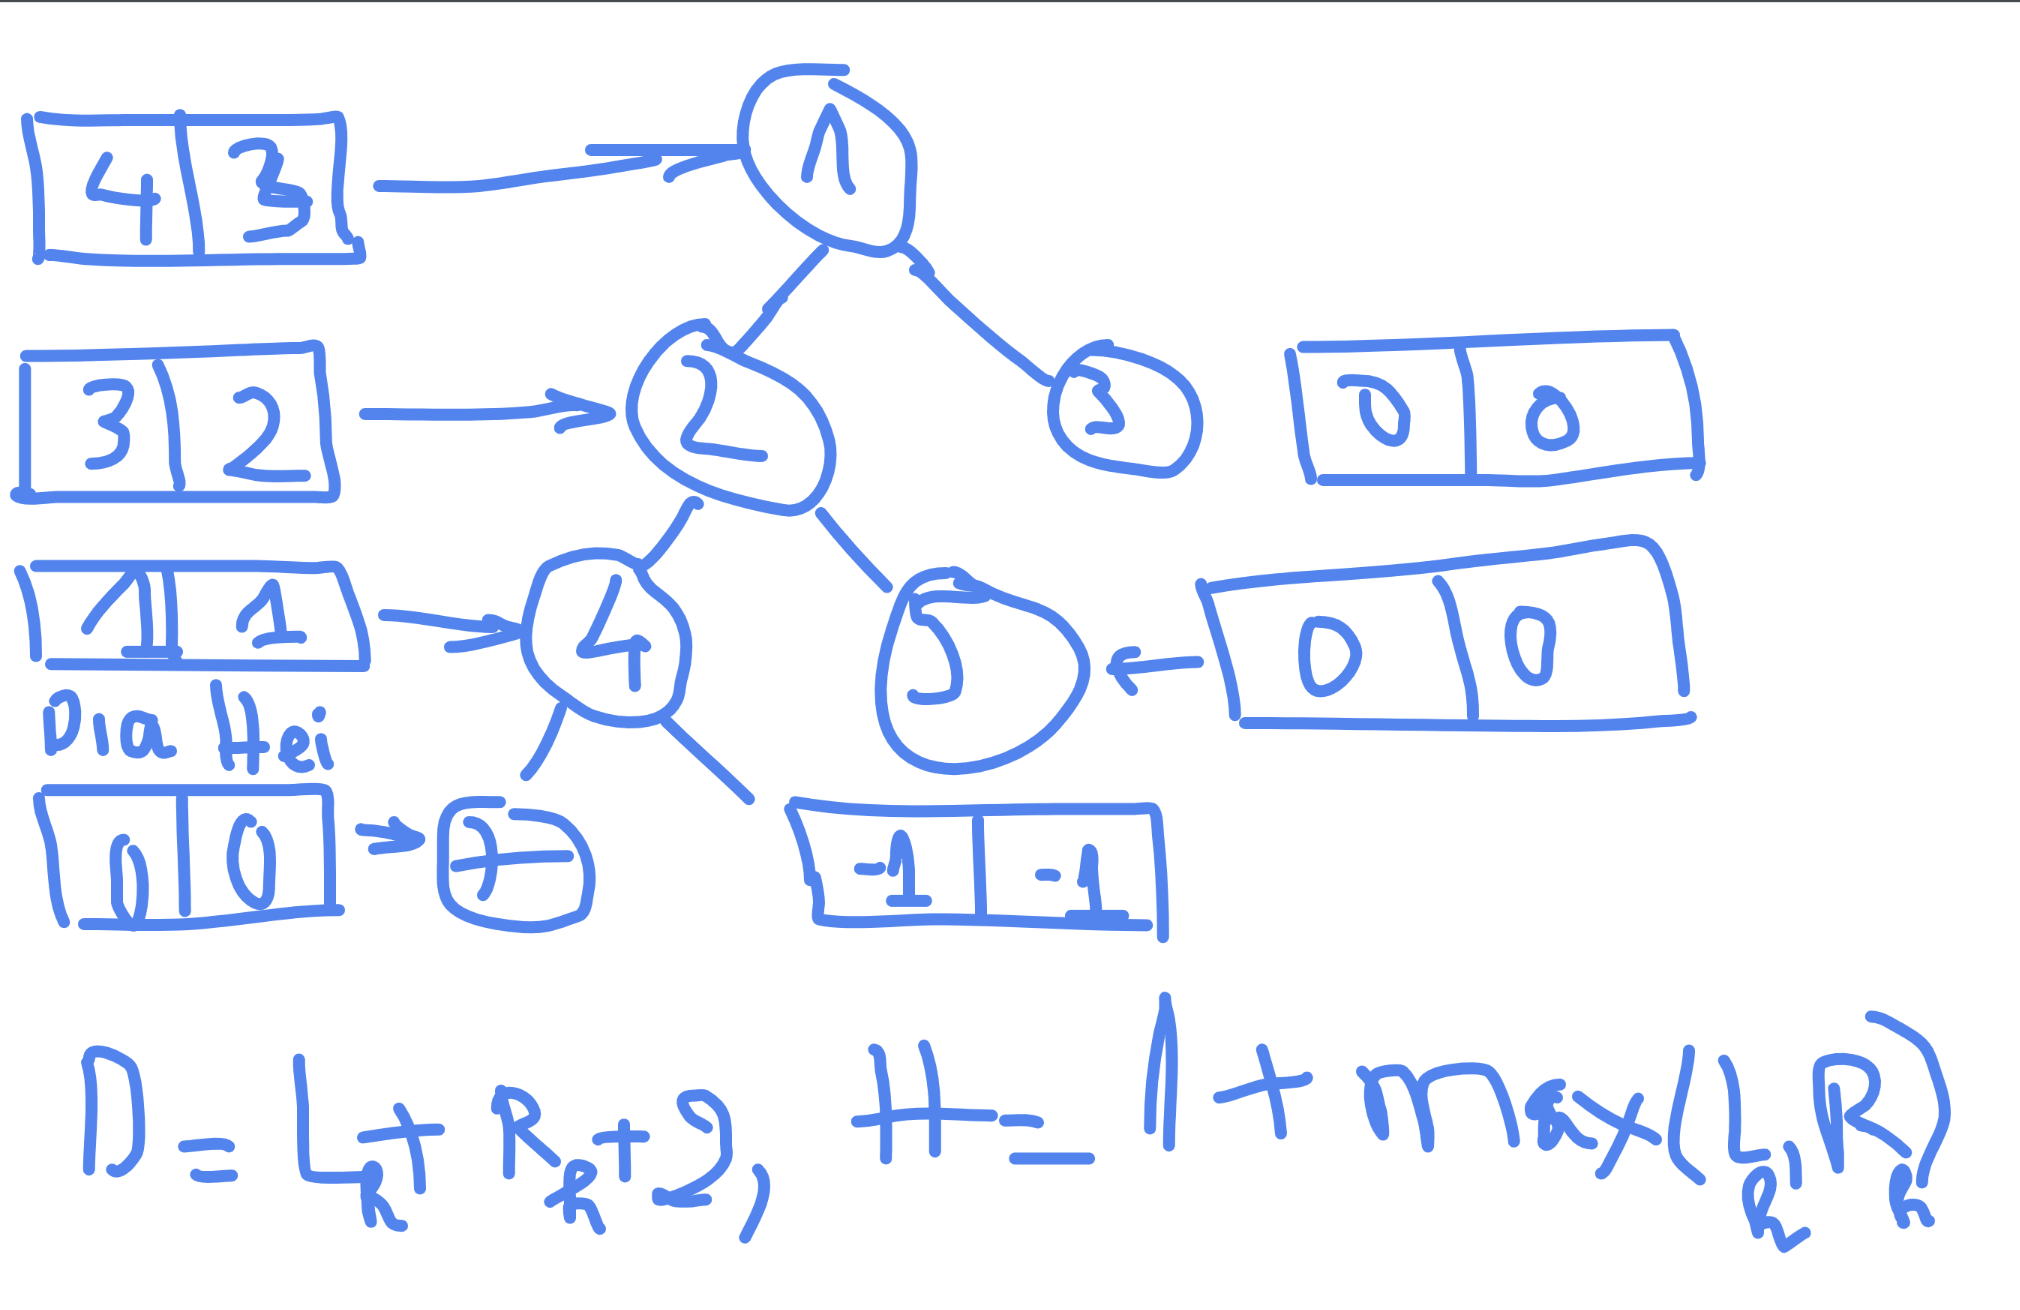 4 3 1
3 2 2 3 0 0
1 1 4 5 0 0
Dia Hei
0 0 7 -1 -1
D = Lh + Rh + 2, H = 1 + max(Lh, Rh)